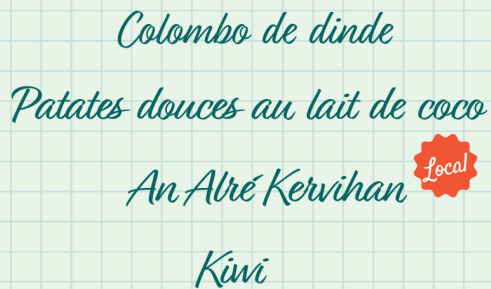 Colombo de dinde
Patates douces au lait de coco
An Alré Kervihan
Local
Kiwi